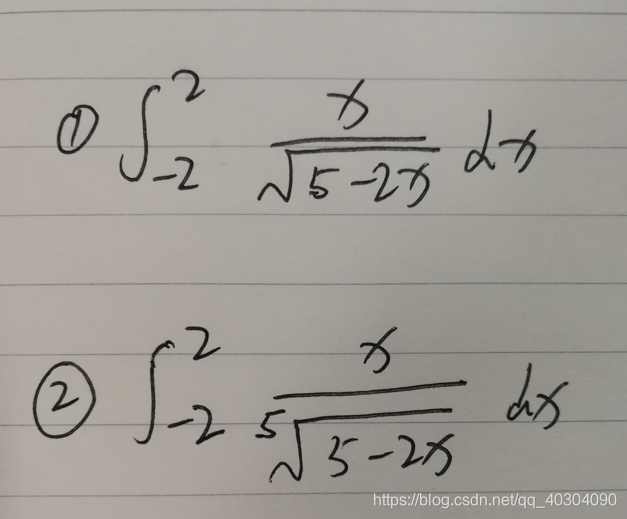 ① ∫_{-2}^{2} \frac{x}{\sqrt{5-2x}} dx
② ∫_{-2}^{2} \frac{x}{\sqrt[5]{5-2x}} dx
https://blog.csdn.net/qq_40304090